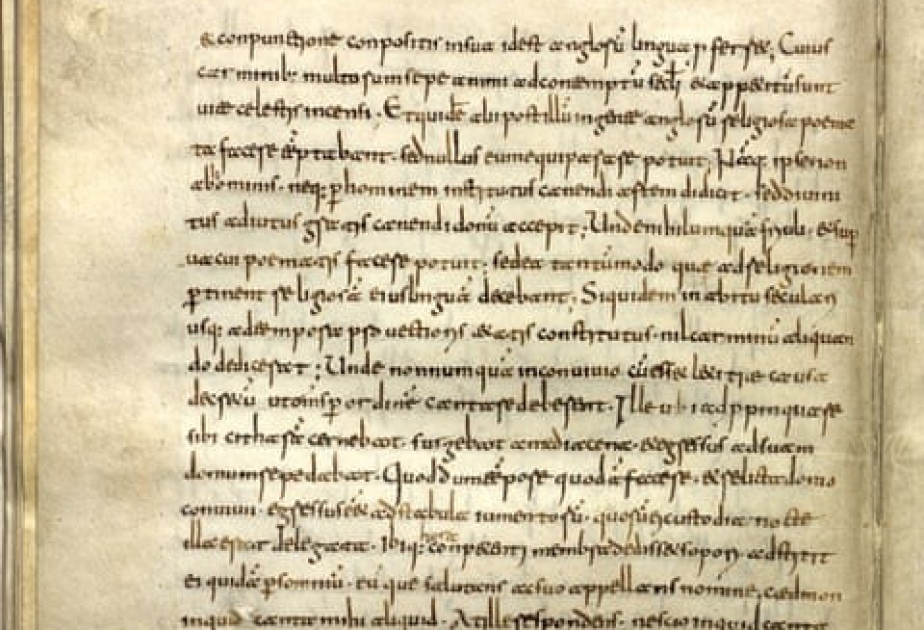 & conpunctione conpositis insua idest anglorū lingua pferret; Cuius
carminib; multorum sepe animi adcontemptū scłi & appetitū sunt
uitae celestis incensi · Et quidē alii post illū ingente anglorū religiosa poema
ta facere tēptabant · sed nullus eum equiparare potuit; Nāq; ipse non
ab ominis · neq; p hominem institutus canendi artem didicit · sed diuini
tus adiutus gratis canendi donū accepit; Unde nihil umquā friuoli · & sup
uacui poematis facere potuit; sed ea tantūmodo que ad religionem
ptinent religiosā eius linguā decebant; Siquidem in abitu seculari
usq; ad tempora prouectioris aetatis constitutus · nil carminū aliquan
do didicerat; Unde nonnumquā inconuiuio cū esset letitiae causa
decretū ut omnes p ordinē cantare deberent · Ille ubi adppinquare
sibi citharā cernebat · surgebat a media cena · & egressus ad suam
domum repedabat · Quod dum tēpore quodā faceret · & relicta domo
conuiuii · egressus eēt ad stabula iumentorū · quorū ei custodia nocte
illa erat delegata · Ibiq; hora conpetenti membra dedisset sopori · adstitit
ei quidā p somniū · eū que salutans ac suo appellans nomine, caedmon
inquid canta mihi aliquid · At ille respondens · nescio inquid canta